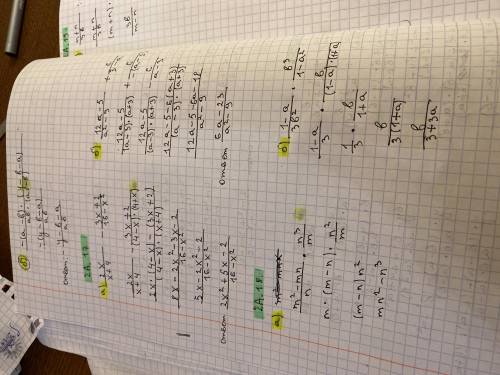 б) -(a-b)·(y-b-a)
-(y-b-a)
ab
ответ: - y-b-a / ab
2А.17.
а) 2x/x+4 - 3x+2/16-x²
2x/x+4 - 3x+2/(4-x)·(4+x)
2x·(4-x)-(3x+2)/(4-x)·(x+4)
8x-2x²-3x-2/16-x²
5x-2x²-2/16-x²
ответ 2x²+5x-2/16-x²
б) 12a-5/a²-9 + 6/3-a
12a-5/(a-3)·(a+3) + 6/-(a-3)
12a-5/(a-3)·(a+3) - 6/a-3
12a-5-6(a+3)/(a-3)·(a+3)
12a-5-6a-18/a²-9
ответ 6a-23/a²-9
2А.18.
а) m²-mn/n · n³/m
m·(m-n)·n²/m
(m-n)n²
mn²-n³
б) 1-a/3b² · b³/1-a²
1-a/3 · b/(1-a)·(1+a)
1/3 · b/1+a
b/3(1+a)
b/3+3a
2А.19.
m+n/3b
(m+n)·
3b/m-n